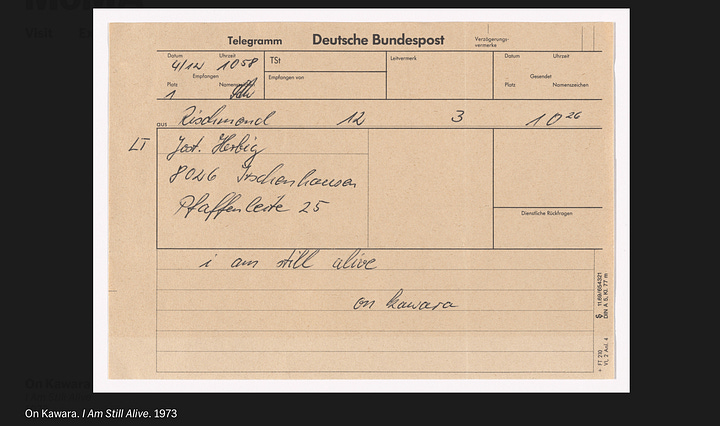 Telegramm Deutsche Bundespost
Verzögerungs-
vermerke
Datum Uhrzeit
4/12 1058
TSt
Leitvermerk
Datum Uhrzeit
Empfangen
Empfangen von
Gesendet
Platz Namenszeichen
1
Platz Namenszeichen
aus Rischmond 12 3 10 26
LT
Jost. Herbig
8026 Irschenhausen
Pfaffenleite 25
Dienstliche Rückfragen
i am still alive
on kawara
DIN A 5, Kl. 77 m
+ FT 210
VI, 2 Anl. 4
On Kawara. I Am Still Alive. 1973